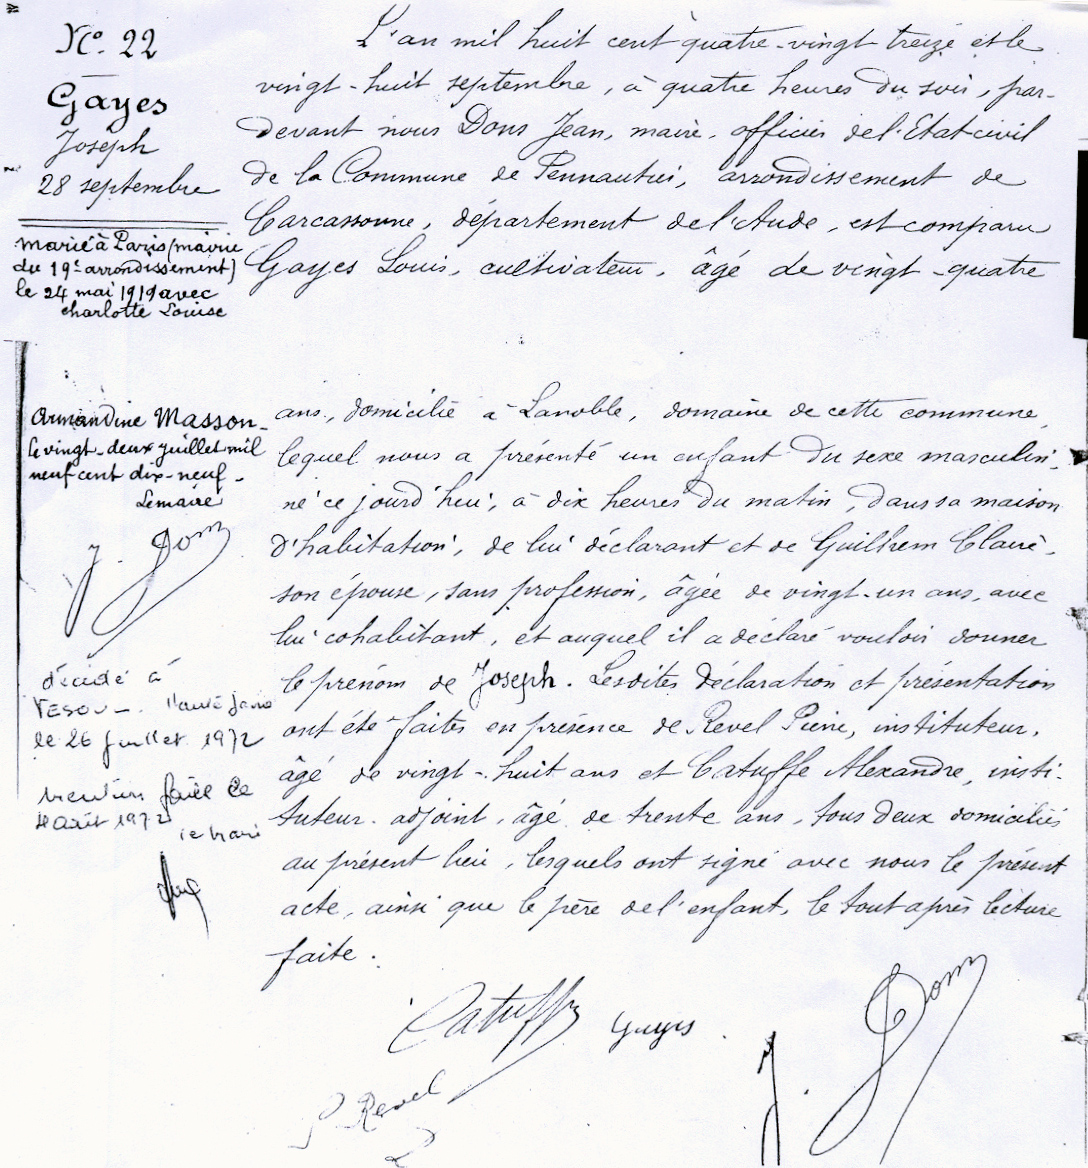 N°. 22
Gayes
Joseph
28 septembre
Marié à Paris (mairie
du 19e arrondissement)
le 24 mai 1919 avec
Charlotte Louise
Armandine Masson_
le vingt-deux juillet mil
neuf cent dix-neuf_
Le maire
décédé à
VESOUL
le 26 juillet 1972
Mention faite le
août 1972
L'an mil huit cent quatre-vingt treize et le
vingt-huit septembre, à quatre heures du soir, par-
devant nous Dons Jean, maire, officier de l'Etat-civil
de la Commune de Pennautier, arrondissement de
Carcassonne, département de l'Aude, est comparu
Gayes Louis, cultivateur, âgé de vingt-quatre
ans, domicilié à Lanoble, domaine de cette commune,
lequel nous a présenté un enfant du sexe masculin,
né ce jourd'hui, à dix heures du matin, dans sa maison
d'habitation, de lui déclarant et de Guilhem Claire,
son épouse, sans profession, âgée de vingt-un ans, avec
lui cohabitant, et auquel il a déclaré vouloir donner
le prénom de Joseph. Lesdites déclaration et présentation
ont été faites en présence de Revel Pierre, instituteur,
âgé de vingt-huit ans et Catuffe Alexandre, insti-
tuteur-adjoint, âgé de trente ans, tous deux domiciliés
au présent lieu, lesquels ont signé avec nous le présent
acte, ainsi que le père de l'enfant, le tout après lecture
faite.
Catuffe Gayes
P. Revel